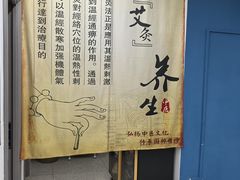 『艾灸』
养生
弘扬中医文化
灸法正是應用其溫熱刺激
到溫經通痹的作用。通過
灸對經絡穴位的溫熱性刺
以溫經散寒加強機體氣
行達到治療目的